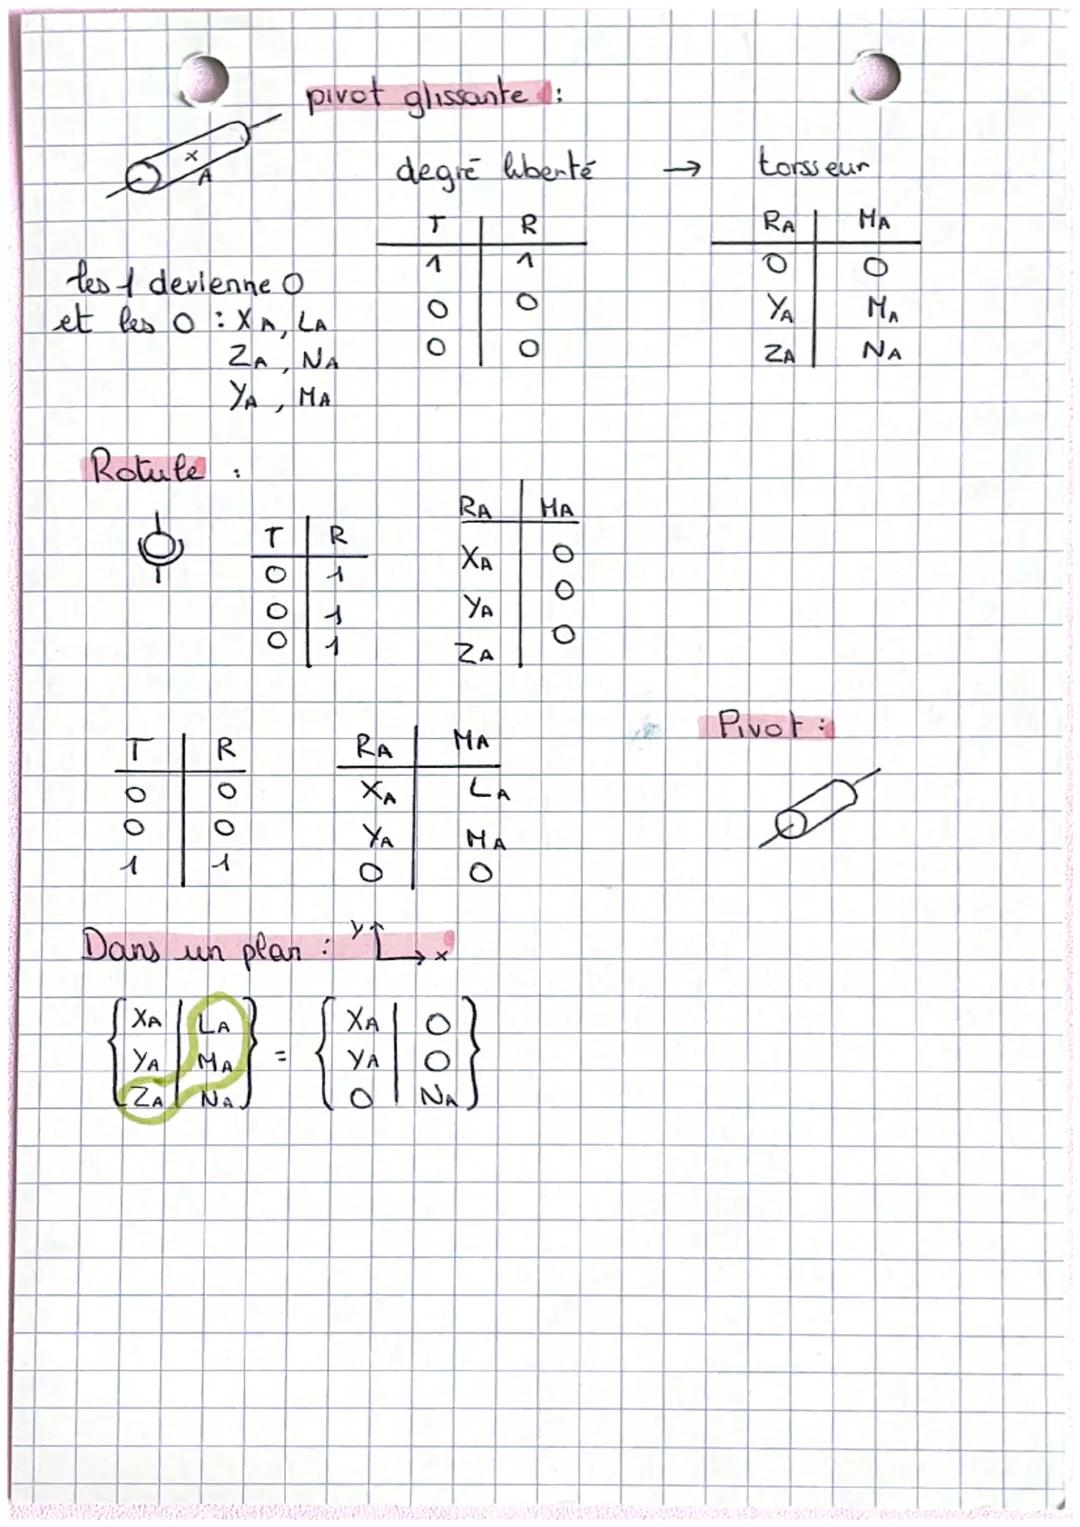 pivot glissante :
x
A
degré liberté → torsseur
T | R
1 | 1
0 | 0
0 | 0
RA | MA
0 | 0
YA | MA
ZA | NA
les 1 devienne 0
et les 0 : XA, LA
ZA, NA
YA, MA
Rotule :
T | R
0 | 1
0 | 1
0 | 1
RA | MA
XA | 0
YA | 0
ZA | 0
T | R
0 | 0
0 | 0
1 | 1
RA | MA
XA | LA
YA | MA
0 | 0
Pivot :
Dans un plan : y x
{ XA | LA } = { XA | 0 }
{ YA | MA } = { YA | 0 }
{ ZA | NA } = { 0 | NA }